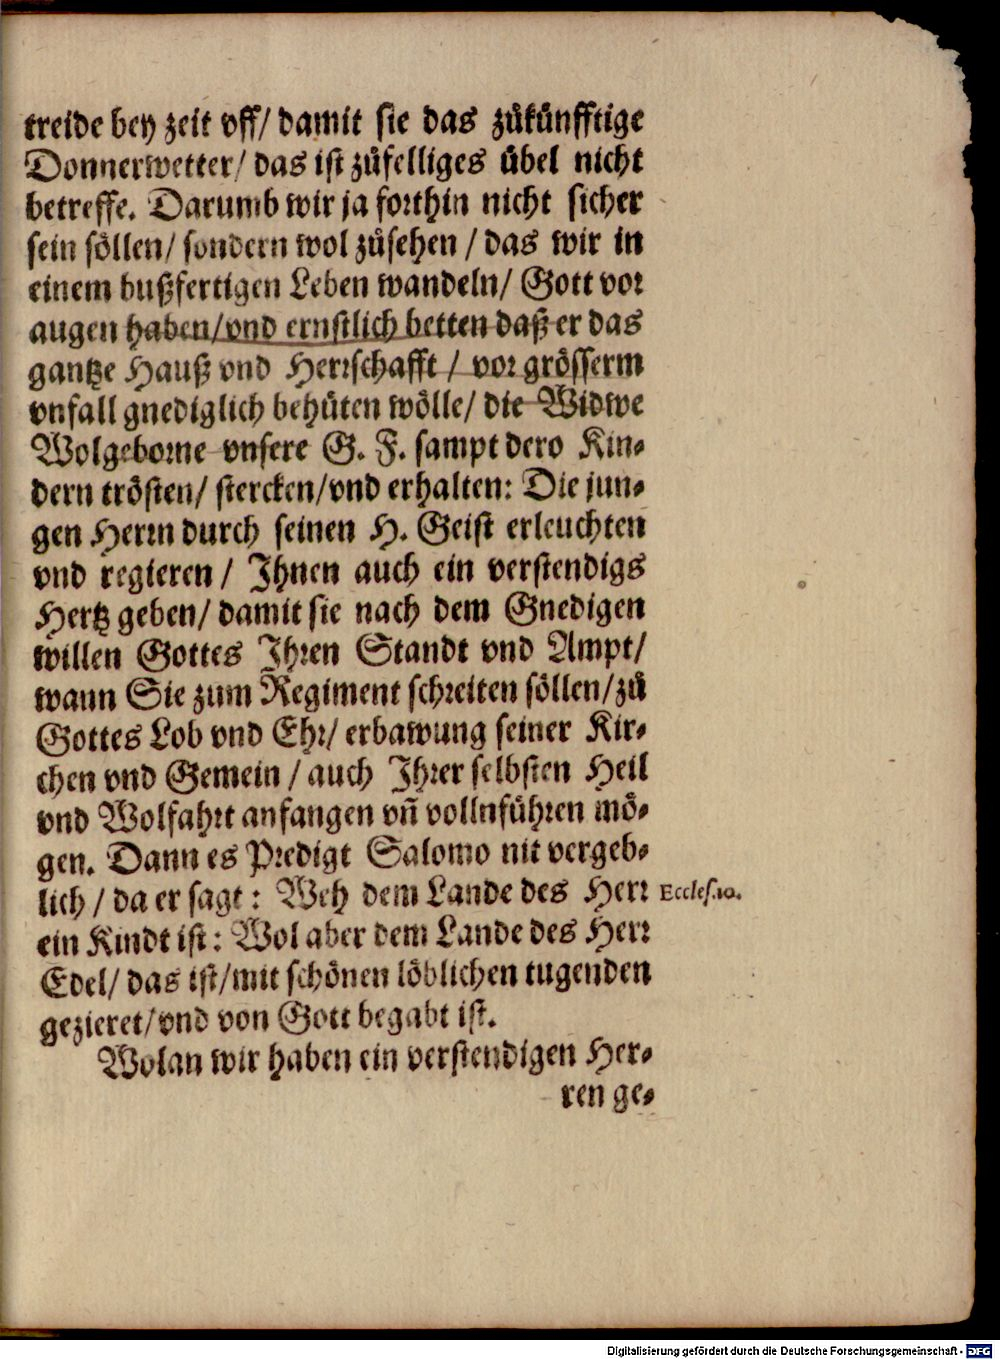 treide bey zeit vff/ damit sie das zůkünfftige
Donnerwetter/ das ist zůfelliges übel nicht
betreffe. Darumb wir ja forthin nicht sicher
sein söllen/ sondern wol zůsehen / das wir in
einem bußfertigen Leben wandeln/ Gott vor
augen haben/vnd ernstlich betten daß er das
gantze Hauß vnd Herrschafft / vor grösserm
vnfall gnediglich behüten wölle/ die Widwe
Wolgeborne vnsere G. F. sampt dero Kin-
dern trösten/ stercken/vnd erhalten: Die jun-
gen Herrn durch seinen H. Geist erleuchten
vnd regieren / Ihnen auch ein verstendigs
Hertz geben/ damit sie nach dem Gnedigen
willen Gottes Ihren Standt vnd Ampt/
wann Sie zum Regiment schreiten söllen/zů
Gottes Lob vnd Ehr/ erbawung seiner Kir-
chen vnd Gemein / auch Ihrer selbsten Heil
vnd Wolfahrt anfangen vñ vollnführen mö-
gen. Dann es Predigt Salomo nit vergeb-
lich / da er sagt : Weh dem Lande des Herr Eccles.10.
ein Kindt ist : Wol aber dem Lande des Herr
Edel/ das ist/mit schönen löblichen tugenden
gezieret/vnd von Gott begabt ist.
Wolan wir haben ein verstendigen Her-
ren ge-
Digitalisierung gefördert durch die Deutsche Forschungsgemeinschaft - DFG